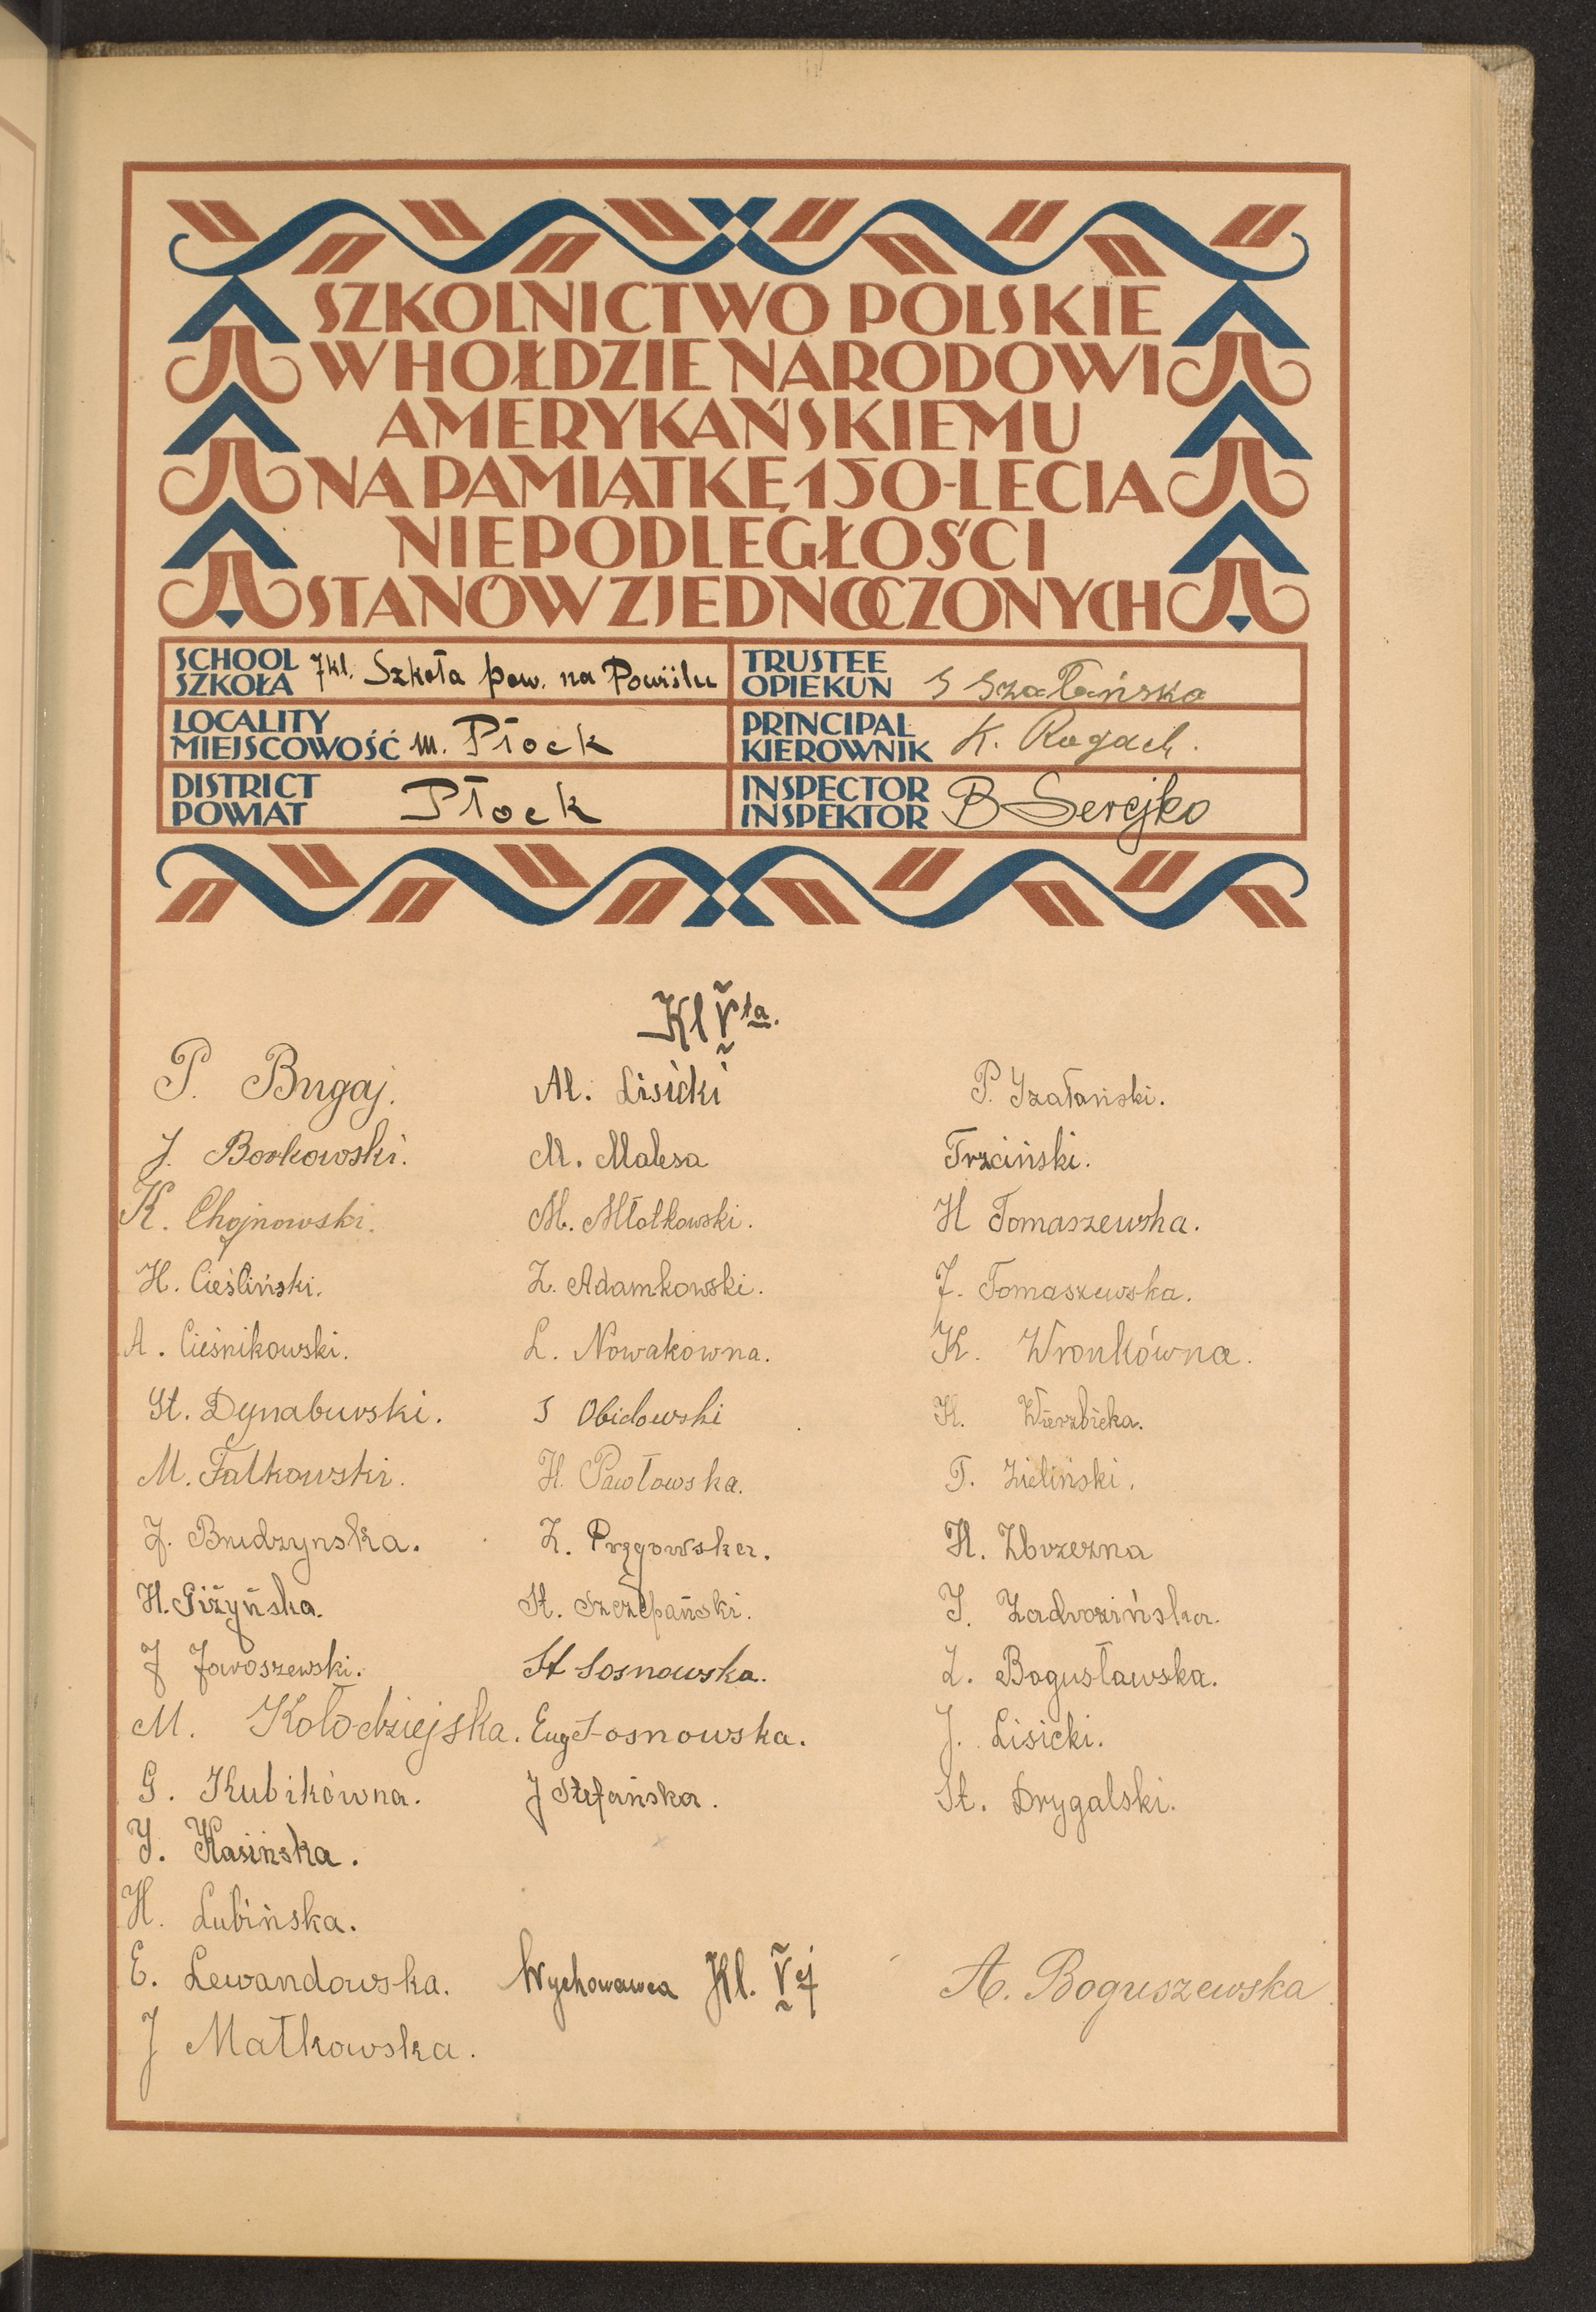 SZKOLNICTWO POLSKIE
W HOŁDZIE NARODOWI
AMERYKAŃSKIEMU
NA PAMIĄTKĘ 150-LECIA
NIEPODLEGŁOŚCI
STANÓW ZJEDNOCZONYCH
SCHOOL
SZKOŁA 7kl. Szkoła pow. na Powiślu
TRUSTEE
OPIEKUN S Szatańska
LOCALITY
MIEJSCOWOŚĆ m. Płock
PRINCIPAL
KIEROWNIK K. Rogach.
DISTRICT
POWIAT Płock
INSPECTOR
INSPEKTOR B Serejko
Kl V ta.
P. Bugaj.
J. Borkowski.
K. Chojnowski.
H. Cieśliński.
A. Cieśnikowski.
St. Dynaburski.
M. Falkowski.
J. Brudzynska.
H. Giżyńska.
J Jaroszewski.
M. Kołodziejska.
G. Kubikówna.
J. Kasińska.
H. Lubińska.
E. Lewandowska.
J Małkowska.
Al. Lisicki
M. Malesa
M. Młotkowski.
Z. Adamkowski.
L. Nowakówna.
S Obidowski
H. Pawłowska.
Z. Pręgowska.
St. Szczepański.
St Sosnowska.
Eug Sosnowska.
J Stefańska.
P. Szatański.
Trzciński.
H Tomaszewska.
J. Tomaszewska.
K. Wronkówna.
K. Wierzbicka.
T. Zieliński.
H. Zbrzezna
J. Zadrozińska.
Z. Bogusławska.
J. Lisicki.
St. Drygalski.
Wychowawca Kl. V ej A. Boguszewska